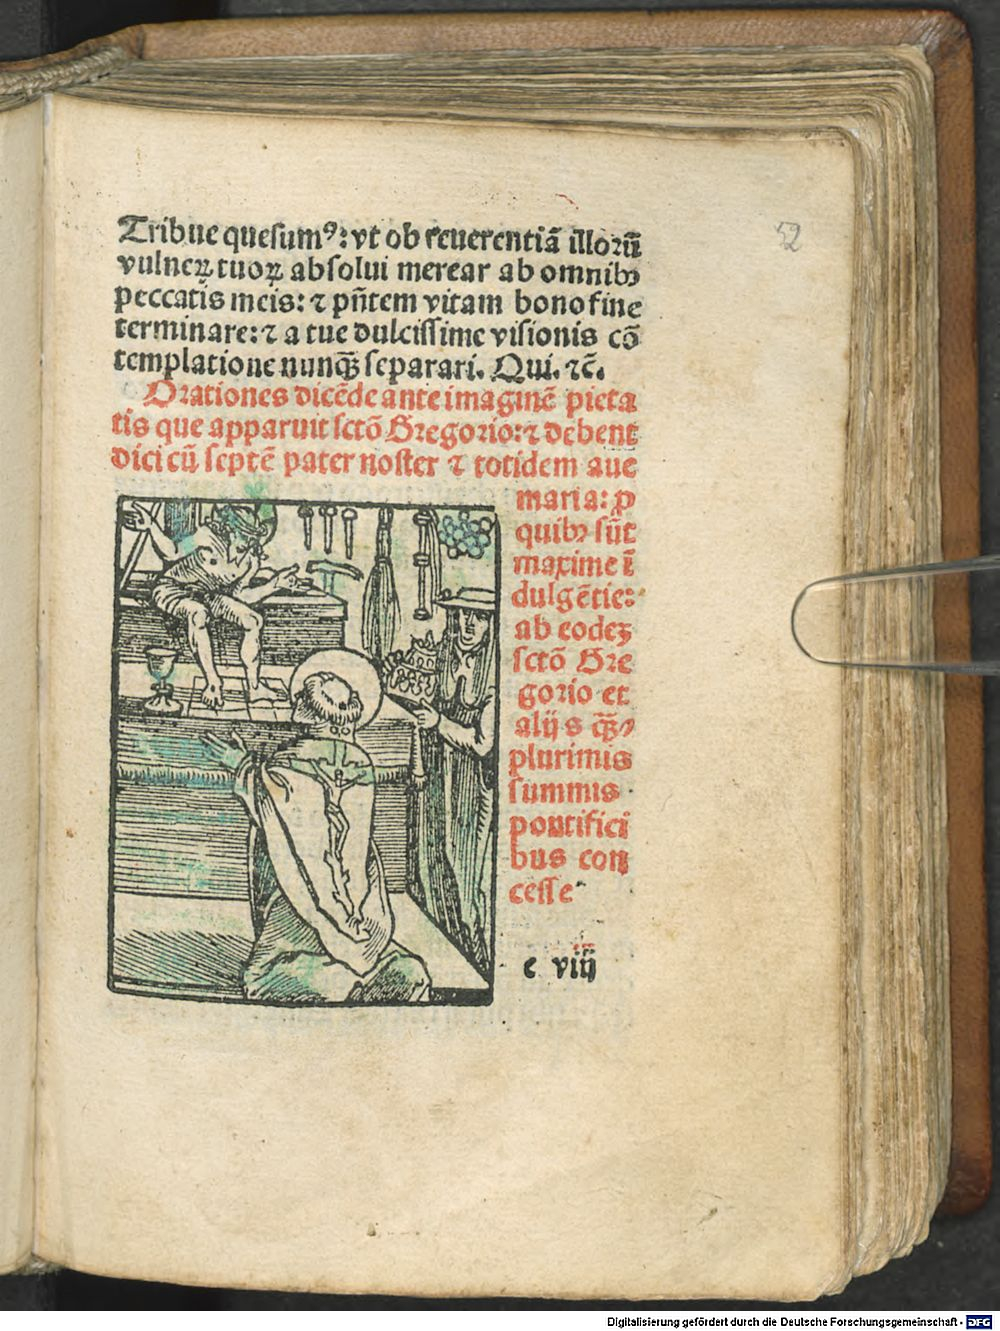 52
Tribue quesumꝰ: vt ob reuerentiā illoꝛū
vulneꝝ tuoꝝ absolui merear ab omnibꝫ
peccatis meis: ⁊ pn̄tem vitam bono fine
terminare: ⁊ a tue dulcissime visionis cō
templatione nunqꝫ̄ separari. Qui. ⁊c̄.
Oꝛationes dicēde ante imaginē pieta
tis que apparuit sctō Gregoꝛio: ⁊ debent
dici cū septē pater noster ⁊ totidem aue
maria: ꝓ
quibꝫ sūt
maxime ī
dulgētie:
ab eodeꝫ
sctō Gre
goꝛio et
alijs qꝫ̄
plurimis
summis
pontifici
bus con
cesse
e viij
Digitalisierung gefördert durch die Deutsche Forschungsgemeinschaft - DFG